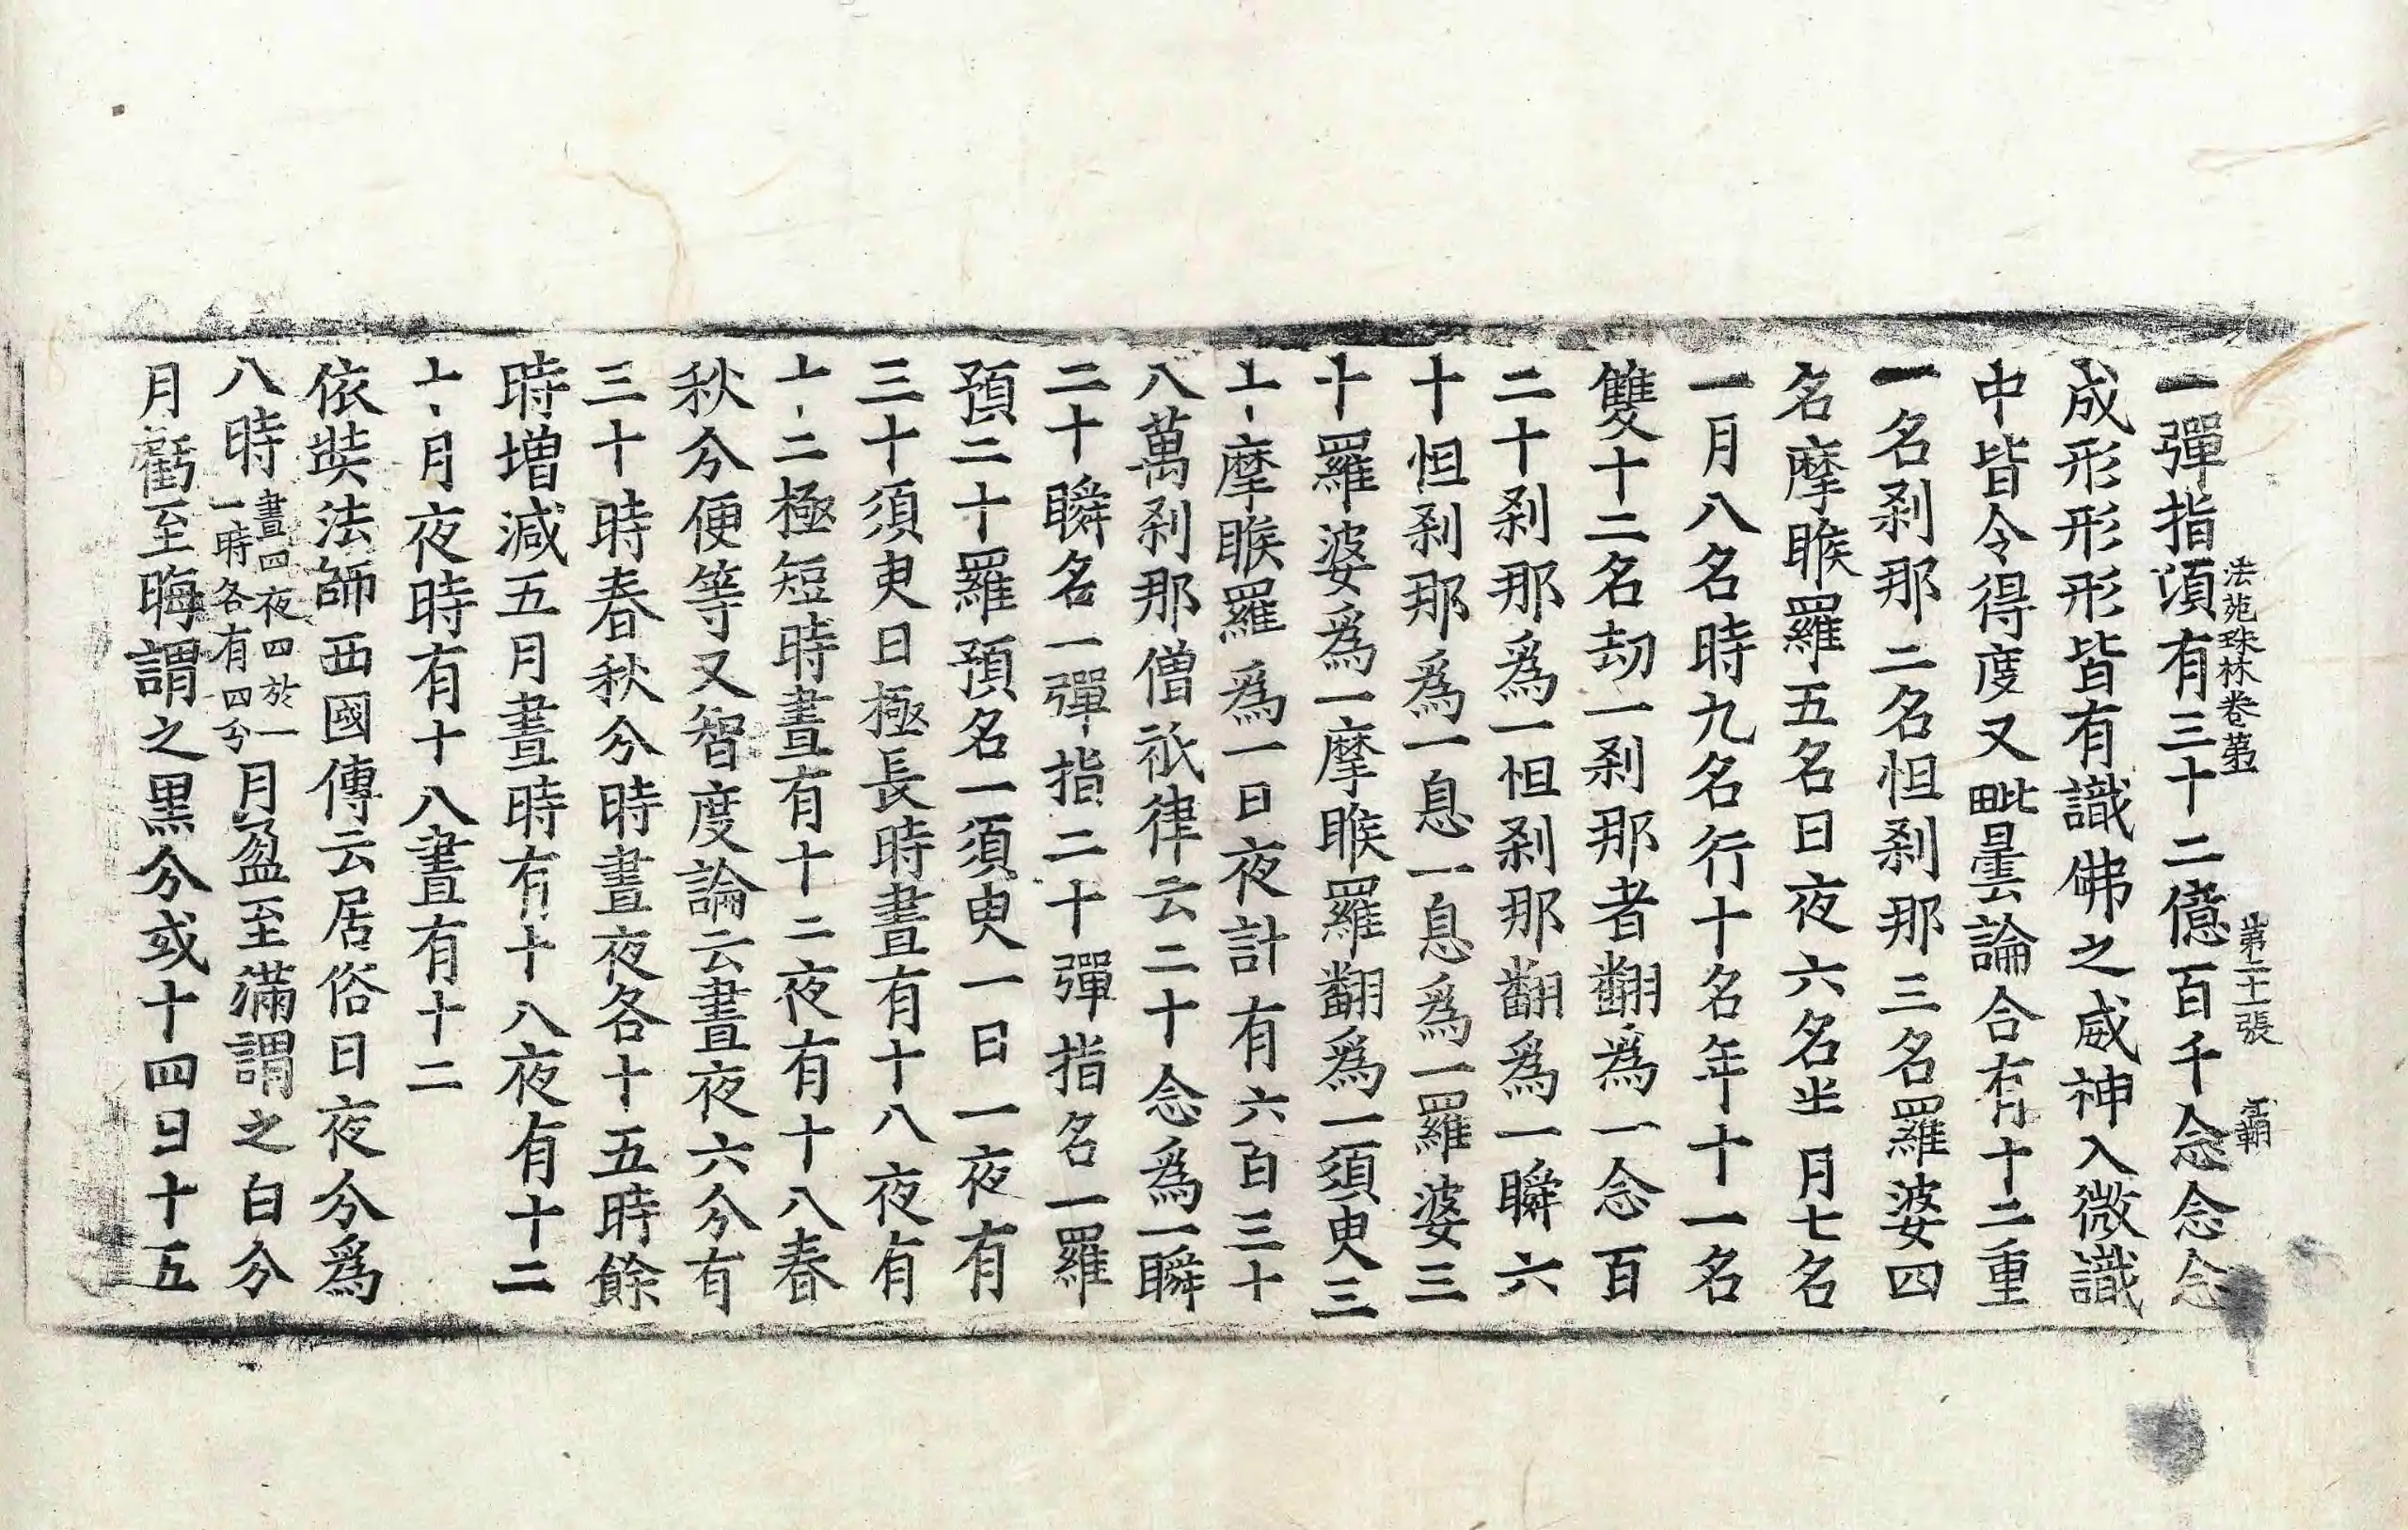 法苑珠林卷第 張 覇
一彈指湏有三十二億百千念念念
成形形形皆有識佛之威神入微識
中皆令得度又毗曇論合有十二重
一名刹那二名怛刹那三名羅婆四
名摩睺羅五名日夜六名半月七名
一月八名時九名行十名年十一名
雙十二名劫一刹那者翻爲一念百
二十刹那爲一怛刹那翻爲一瞬六
十怛刹那爲一息一息爲一羅婆三
十羅婆爲一摩睺羅翻爲一須臾三
十摩睺羅爲一日夜計有六百三十
八萬刹那僧祇律云二十念爲一瞬
二十瞬名一彈指二十彈指名一羅
預二十羅預名一須臾一日一夜有
三十須臾日極長時晝有十八夜有
十二極短時晝有十二夜有十八春
秋分便等又智度論云晝夜六分有
三十時春秋分時晝夜各十五時餘
時增減五月晝時有十八夜有十二
十一月夜時有十八晝有十二
依奘法師西國傳云居俗日夜分爲
八時晝四夜四於一一時各有四分月盈至滿謂之白分
月虧至晦謂之黑分或十四日十五